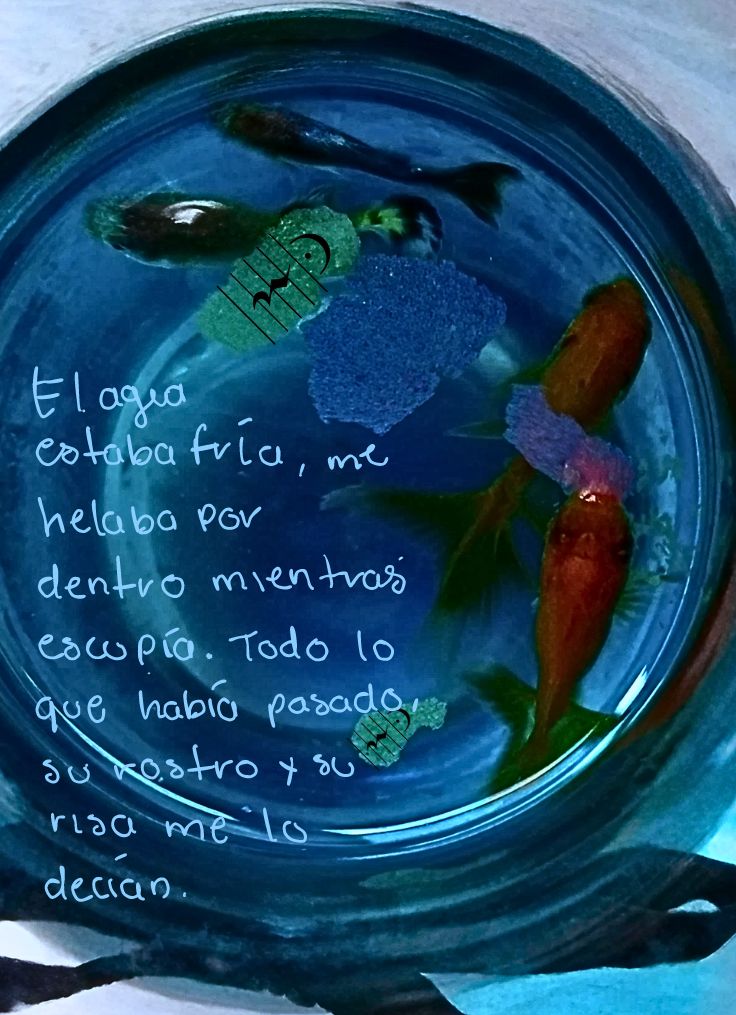 El agua
estaba fría, me
helaba por
dentro mientras
escupía. Todo lo
que había pasado,
su rostro y su
risa me lo
decían.